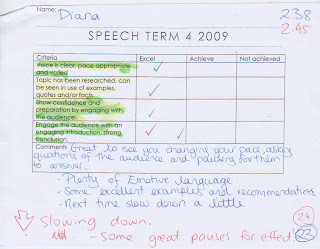 Name: Diana
2:38
2.45
SPEECH TERM 4 2009
Criteria Excel Achieve Not achieved
Voice is clear, pace appropriate
and varied
Topic has been researched, can
be seen in use of examples,
quotes and/or facts
Show confidence and
preparation by engaging with
the audience
Engage the audience with an
engaging introduction, strong
conclusion.
Comments Great to see you changing your pace, asking
questions of the audience and pausing for them
to answer.
- Plenty of Emotive language
- Some excellent examples and recommendations
- Next time slow down a little
Slowing down.
- Some great pauses for effect!
24
22